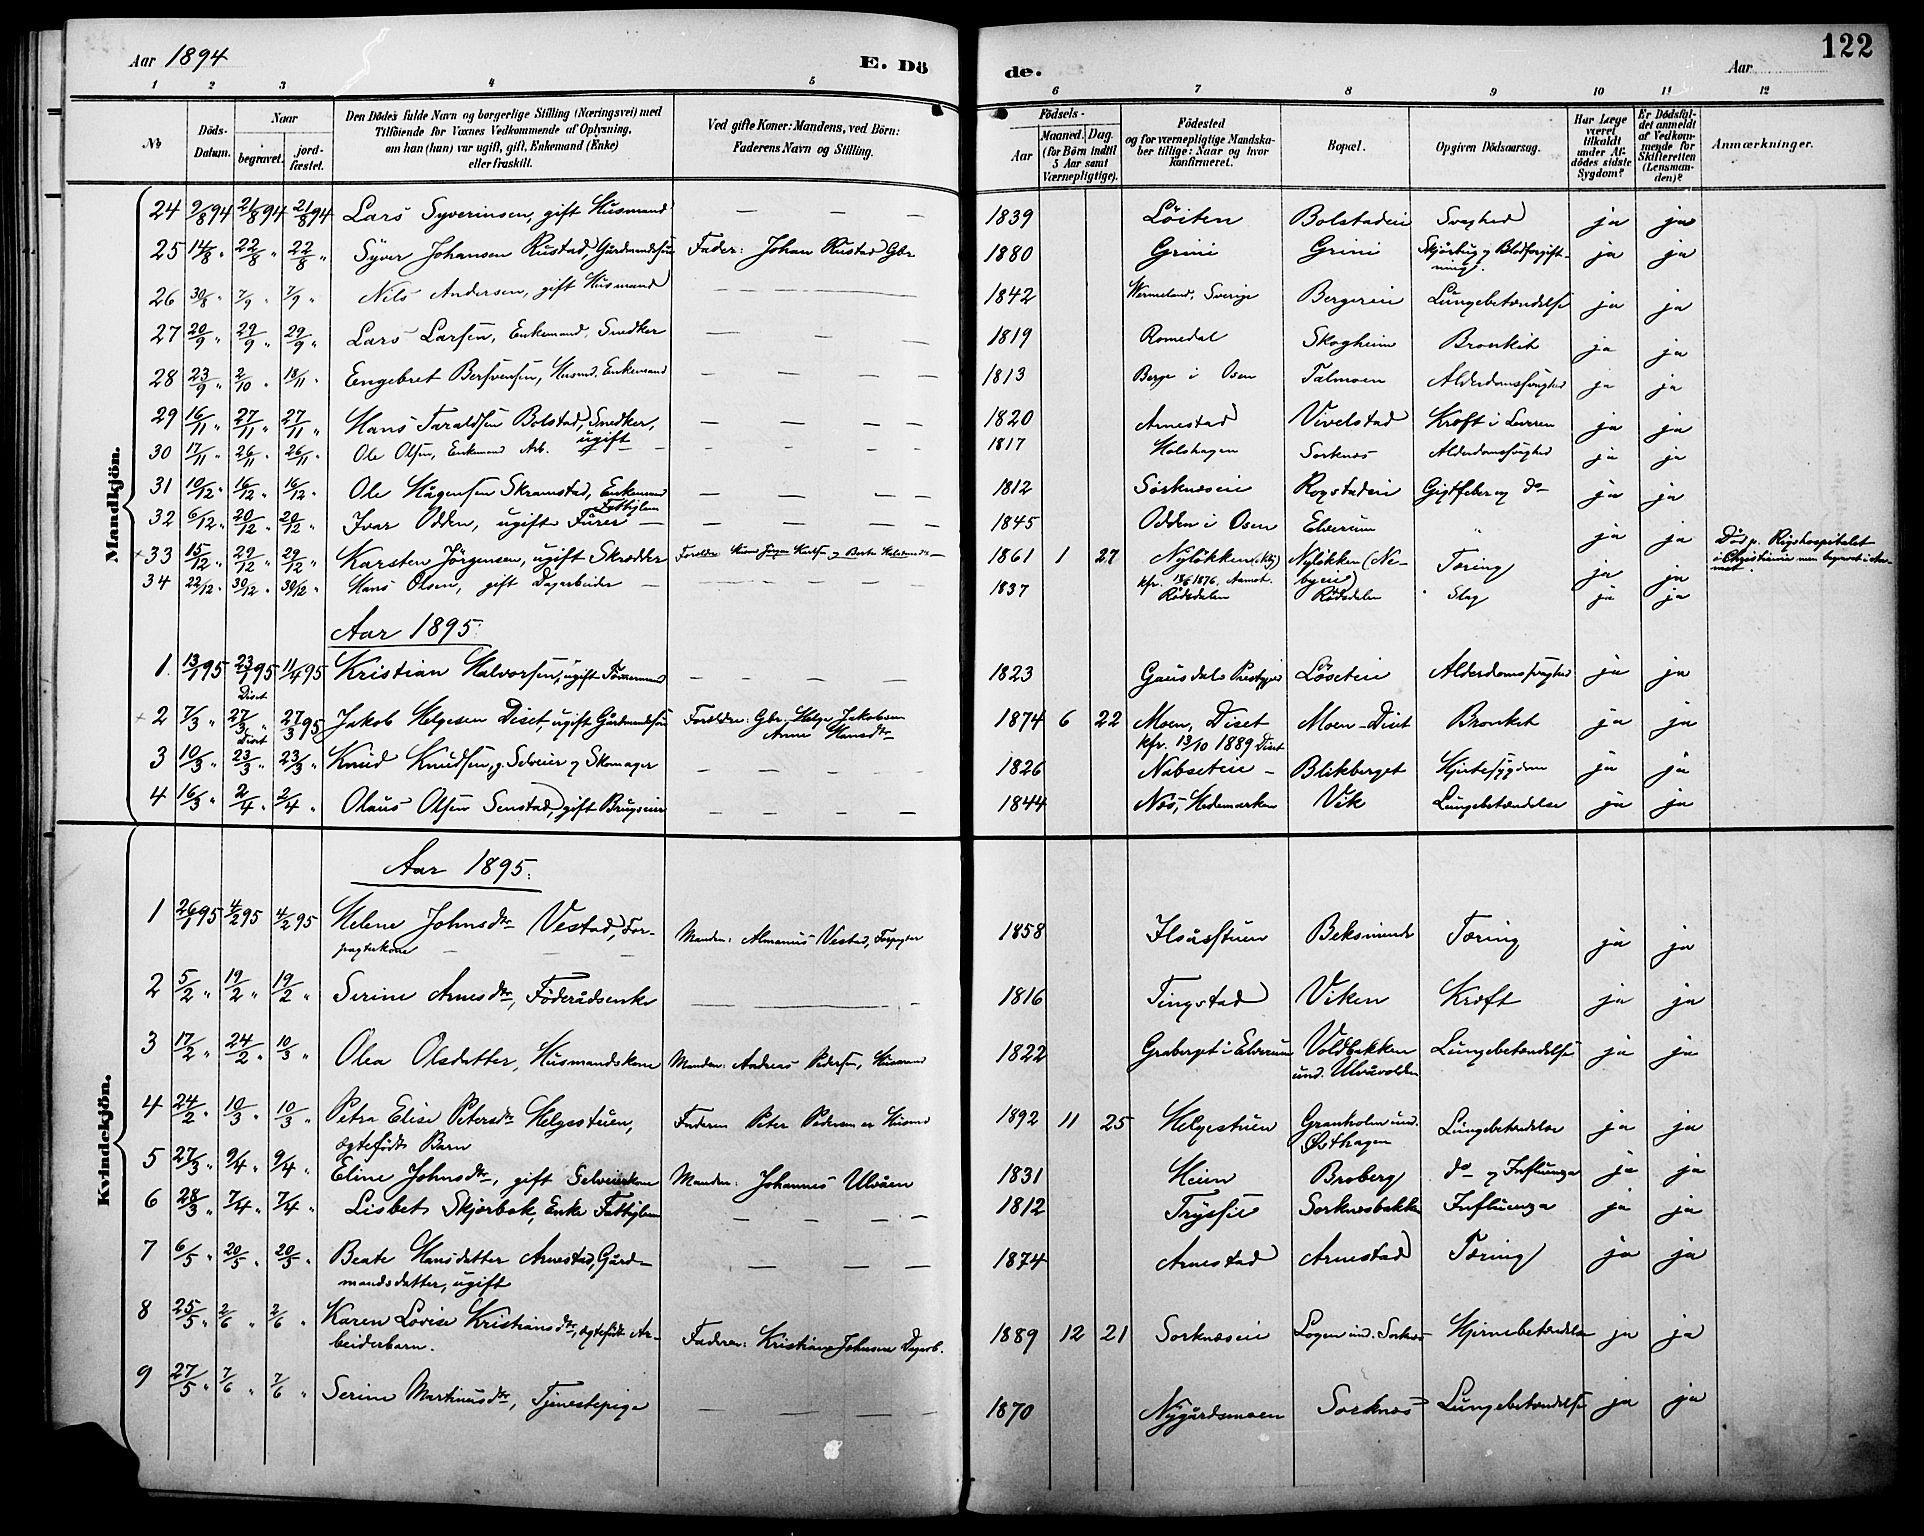 122
Aar 1894 E. Dö de. Aar
1 2 3 4 5 6 7 8 9 10 11 12
No Döds-Datum. Naar begravet. jordfæstet. Den Dödes fulde Navn og borgerlige Stilling (Næringsvei) med Tilföiende for Voxnes Vedkommende af Oplysning, om han (hun) var ugift, gift, Enkemand (Enke) eller fraskilt. Ved gifte Koner: Mandens, ved Börn: Faderens Navn og Stilling. Födsels- Aar Maaned. Dag. (for Börn indtil 5 Aar samt Værnepligtige). Födested og for værnepligtige Mandskaber tillige: Naar og hvor konfirmeret. Bopæl. Opgiven Dödsaarsag. Har Læge været tilkaldt under Afdödes sidste Sygdom? Er Dödsfaldet anmeldt af Vedkommende for Skifteretten (Lensmanden)? Anmærkninger.
Mandkjön.
24 9/8 94 21/8 94 21/8 94 Lars Syverinsen, gift Husmand — — — — 1839 Löiten Bolstadeie Svaghed ja ja
25 14/8 " 22/8 " 22/8 " Syver Johansen Rustad, Gårdmandssön Fader: Johan Rustad Gbr 1880 Grini Grini Skjörbug og Blodforgiftning. ja ja
26 30/8 " 7/9 " 7/9 " Nils Andersen, gift Husmand 1842 Wermeland, Sverige Bergerie Lungebetændelse ja ja
27 20/9 " 29/9 " 29/9 " Lars Larsen, Enkemand, Snedker — — — 1819 Romedal Skogheim Bronkit ja ja
28 23/9 " 2/10 " 18/11 " Engebret Bersvensen, Husmd. Enkemand — — — — 1813 Berge i Osen Talmoen Alderdomssvaghed ja ja
29 16/11 " 27/11 " 27/11 " Hans Taraldsen Bolstad, Snedker, ugift — — — — 1820 Arnestad Vivelstad Kræft i Leveren ja ja
30 17/11 " 26/11 " 26/11 " Ole Olsen, Enkemand Arb. — — — — 1817 Holshagen Sorknæs Alderdomssvaghed ja ja
31 10/12 " 16/12 " 16/12 " Ole Hågensen Skramstad, Enkemand Fattiglem — — — — 1812 Sorknæseie Rogstadeie Gigtfeber og do ja ja
32 6/12 " 20/12 " 20/12 " Ivar Odden, ugift Furer — — — — 1845 Odden i Osen Elverum " ja ja
33 15/12 " 29/12 " 29/12 " Karsten Jörgensen, ugift Skrædder Forældre: 1861 1 27 Nyløkken kfr. 18/6 1876, Aamot. Nyløkken (Nebyeie) Tæring ja ja Død p. Rigshospitalet i Christiania men begravet i Aamot.
34 22/12 " 30/12 " 30/12 " Hans Olsen, gift Dagarbeider — 1837 Rødsdalen Rødsdalen Slag ja ja
Aar 1895:
1. 13/1 95 23/1 95 11/4 95 Kristian Halvorsen, ugift Tömmermand — — — — 1823 Gausdals Prestegjeld Løseteie Alderdomssvaghed ja ja
2 7/3 " 27/3 " Diset 27/3 95 Jakob Helgesen Diset, ugift Gårdmandssön Forældre: Gbr. Helge Jakobsen Anne Hansdtr 1874 6 22 Moen, Diset kfr. 13/10 1889 Diset Moen-Diset Bronkit ja ja
3 10/3 " Diset 23/3 " 23/3 " Knud Knudsen, g. Selveier og Skomager — — — — 1826 Nabseteie — Blikberget Hjertesygdom ja ja
4 16/3 " 2/4 " 2/4 " Olaus Olsen Senstad, gift Brugseier — — — — 1844 Næs, Hedemarken Vik Lungebetændelse ja ja
Kvindekjön.
Aar 1895:
1 26/1 95 4/2 95 4/2 95 Helene Johnsdtr Vestad, Forpagterkone Manden: Almanus Vestad, Forpagter 1858 Ilsåsstuen Beksminde Tæring ja ja
2 5/2 " 19/2 " 19/2 " Serine Arnesdtr, Föderådsenke 1816 Tingstad Viken Kræft ja ja
3 17/2 " 24/2 " 10/3 " Olea Olsdatter, Husmandskone Manden: Andreas Pedersen, Husmand 1822 Graberget i Elverum Voldbakken und. Ulvåvolden Lungebetændelse ja ja
4 24/2 " 10/3 " 10/3 " Petra Elise Petersdtr Helgestuen, ægtefödt Barn Faderen Peter Pedersen er Husmd 1892 11 25 Helgestuen Granholen und. Østhagen Lungebetændelse ja ja
5 27/3 " 9/4 " 9/4 " Eline Johnsdtr, gift Selveierkone Manden: Johannes Ulvåen 1831 Heien Broberg do og Influenza ja ja
6 28/3 " 7/4 " 7/4 " Lisbet Skjærbæk, Enke Fattiglem — — — — 1812 Trysil Sorknæsbakken Influenza ja ja
7 6/5 " 20/5 " 20/5 " Beate Hansdatter Arnestad, Gårdmandsdatter, ugift — — — — 1874 Arnestad Arnestad Tæring ja ja
8 25/5 " 2/6 " 2/6 " Karen Lovise Kristiansdtr, ægtefödt Arbeiderbarn. Faderen: Kristian Johnsen Dagarb. 1889 12 21 Sorknæseie Logen und. Sorknæs Hjernebetændelse ja ja
9 27/5 " 7/6 " 7/6 " Serine Martinusdtr, Tjenestepige — — — — 1870 Nygårdsmoen Sorknæs Lungebetændelse ja ja